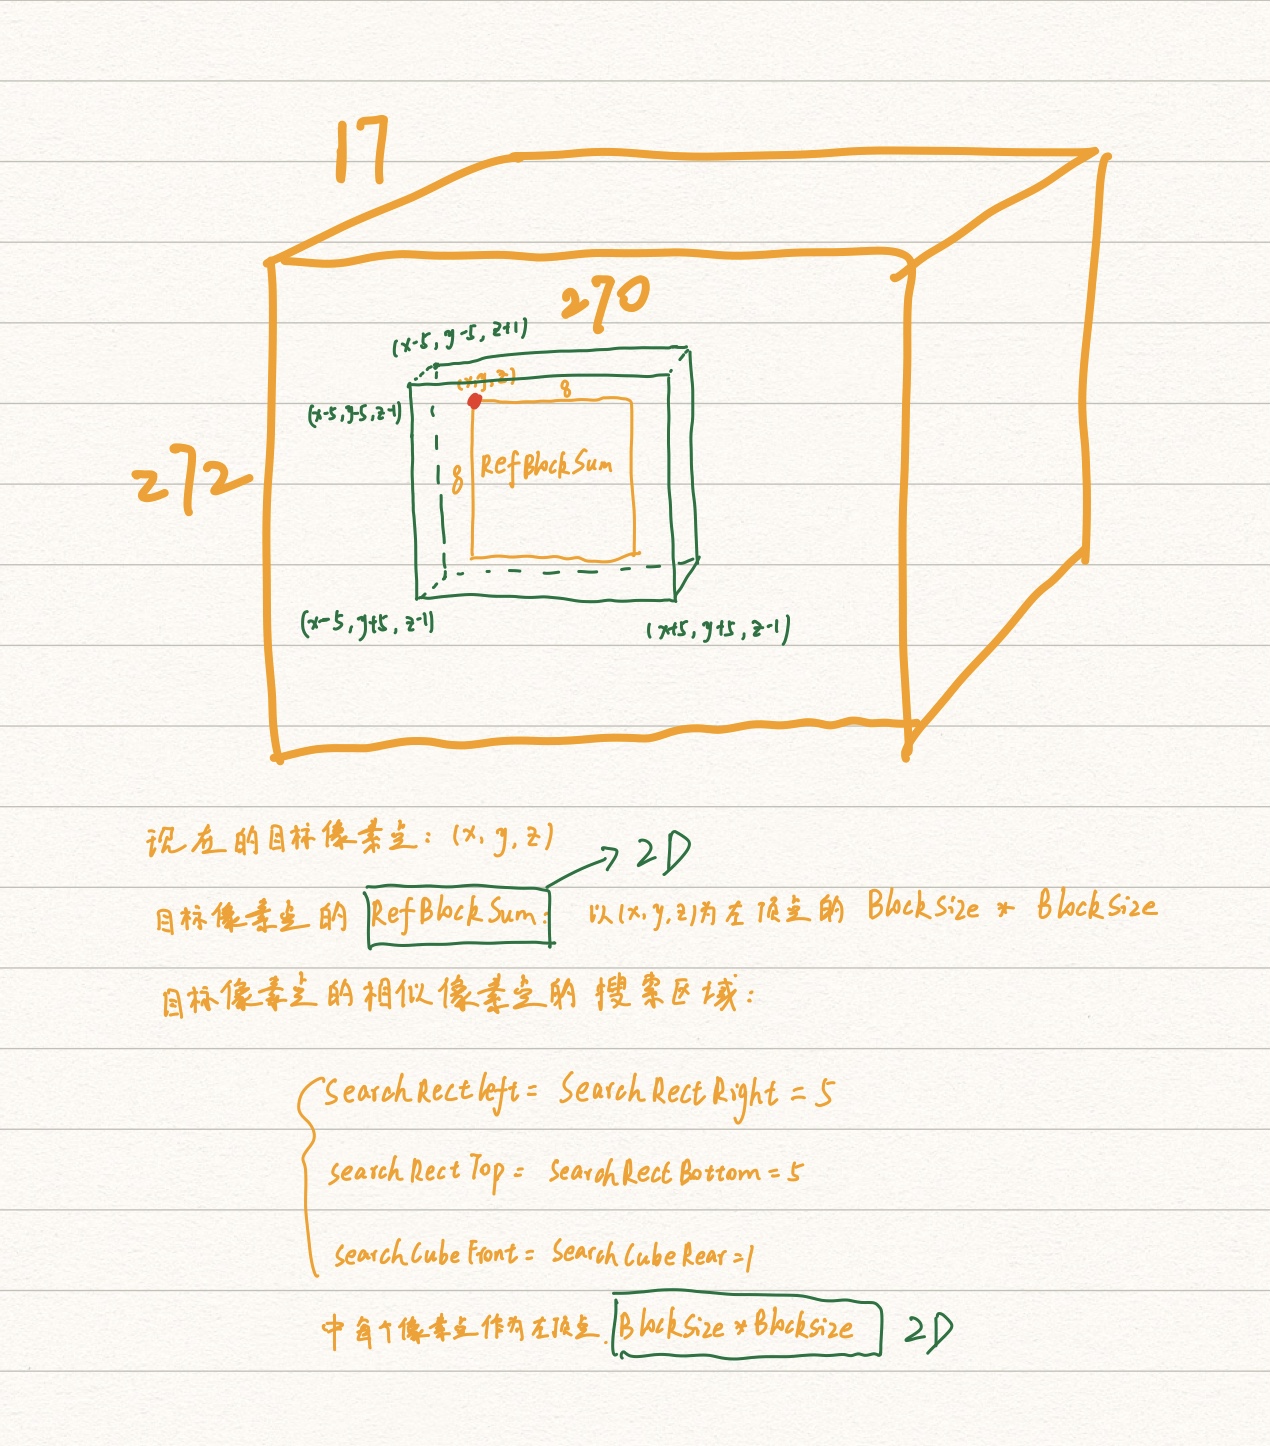 17
270
(x-5, y-5, z+1)
(x,y,z)
8
(x-5,y-5,z-1)
272
8
RefBlockSum
(x-5, y+5, z-1)
(x+5, y+5, z-1)
现在的目标像素点: (x, y, z)
→ 2D
目标像素点的 RefBlockSum: 以(x,y,z)为左顶点的 BlockSize * BlockSize
目标像素点的相似像素点的搜索区域:
SearchRectLeft = SearchRectRight = 5
SearchRectTop = SearchRectBottom = 5
SearchCubeFront = SearchCubeRear = 1
中每个像素点作为左顶点. BlockSize * Blocksize 2D